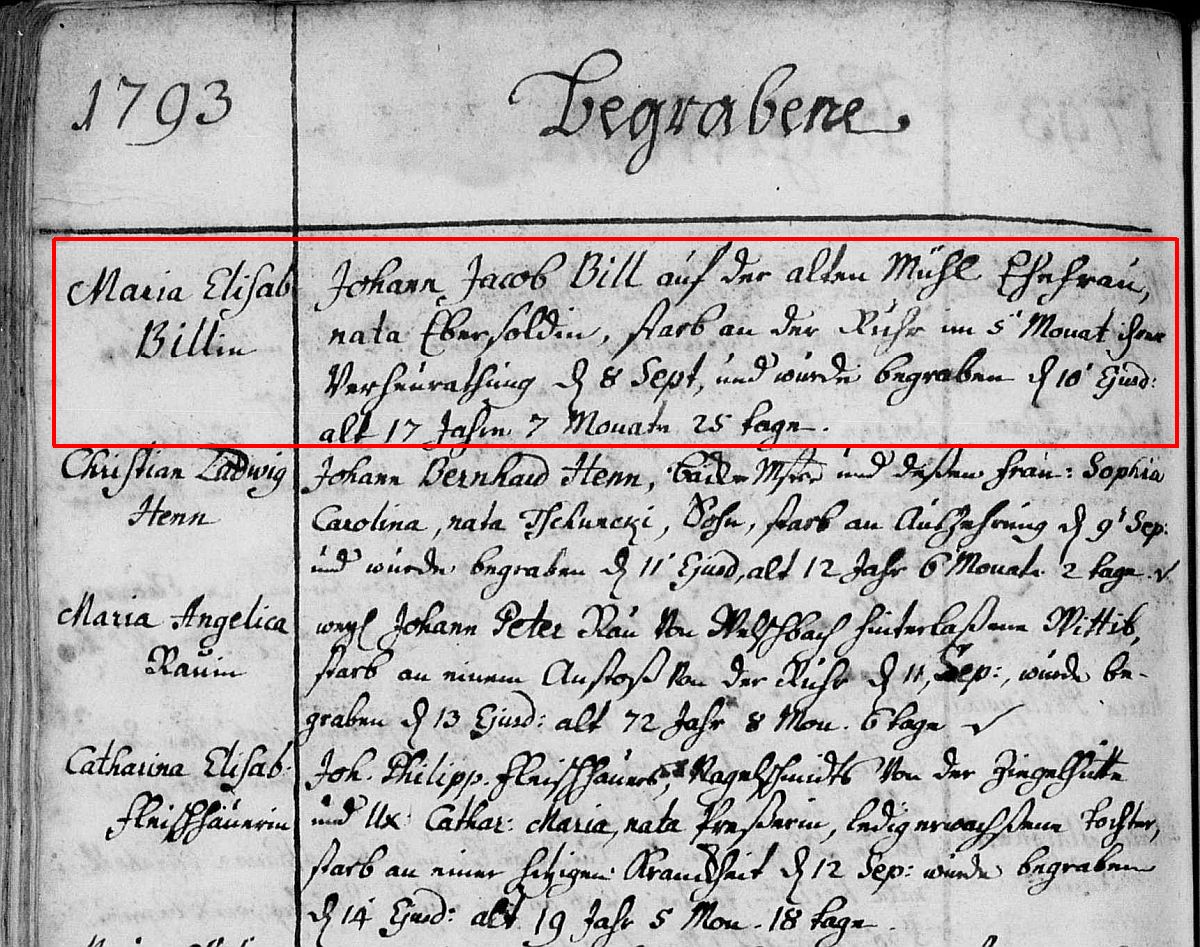 1793
Begrabene.
Maria Elisab
Billin
Johann Jacob Bill auf der alten Mühl Ehefrau,
nata Ebersoldin, starb an der Ruhr im 5' Monat ihrer
Verheurathung d 8 Sept, und wurde begraben d 10' Ejusd:
alt 17 Jahre 7 Monate 25 tage.
Christian Ludwig
Henn
Johann Bernhard Henn, und deßen Frau: Sophia
Carolina, nata Sohn, starb an Auszehrung d 9' Sep:
und wurde begraben d 11' Ejusd, alt 12 Jahr 6 Monate 2 tage.
Maria Angelica
Rauin
weyl Johann Peter Rau von Welschbach hinterlaßene Wittib,
starb an einem Anstoß von der Ruhr d 11, Sep:, wurde be-
graben d 13 Ejusd: alt 72 Jahr 8 Mon. 6 tage
Catharina Elisab.
Fleischhäuerin
Joh. Philipp Fleischhäuers, Nagelschmidts von der Ziegelhütte
und Ux: Cathar: Maria, nata Preßerin, ledig erwachßene tochter,
starb an einer hitzigen Kranckheit d 12 Sep: wurde begraben
d 14 Ejusd: alt 19 Jahr 5 Mon. 18 tage.